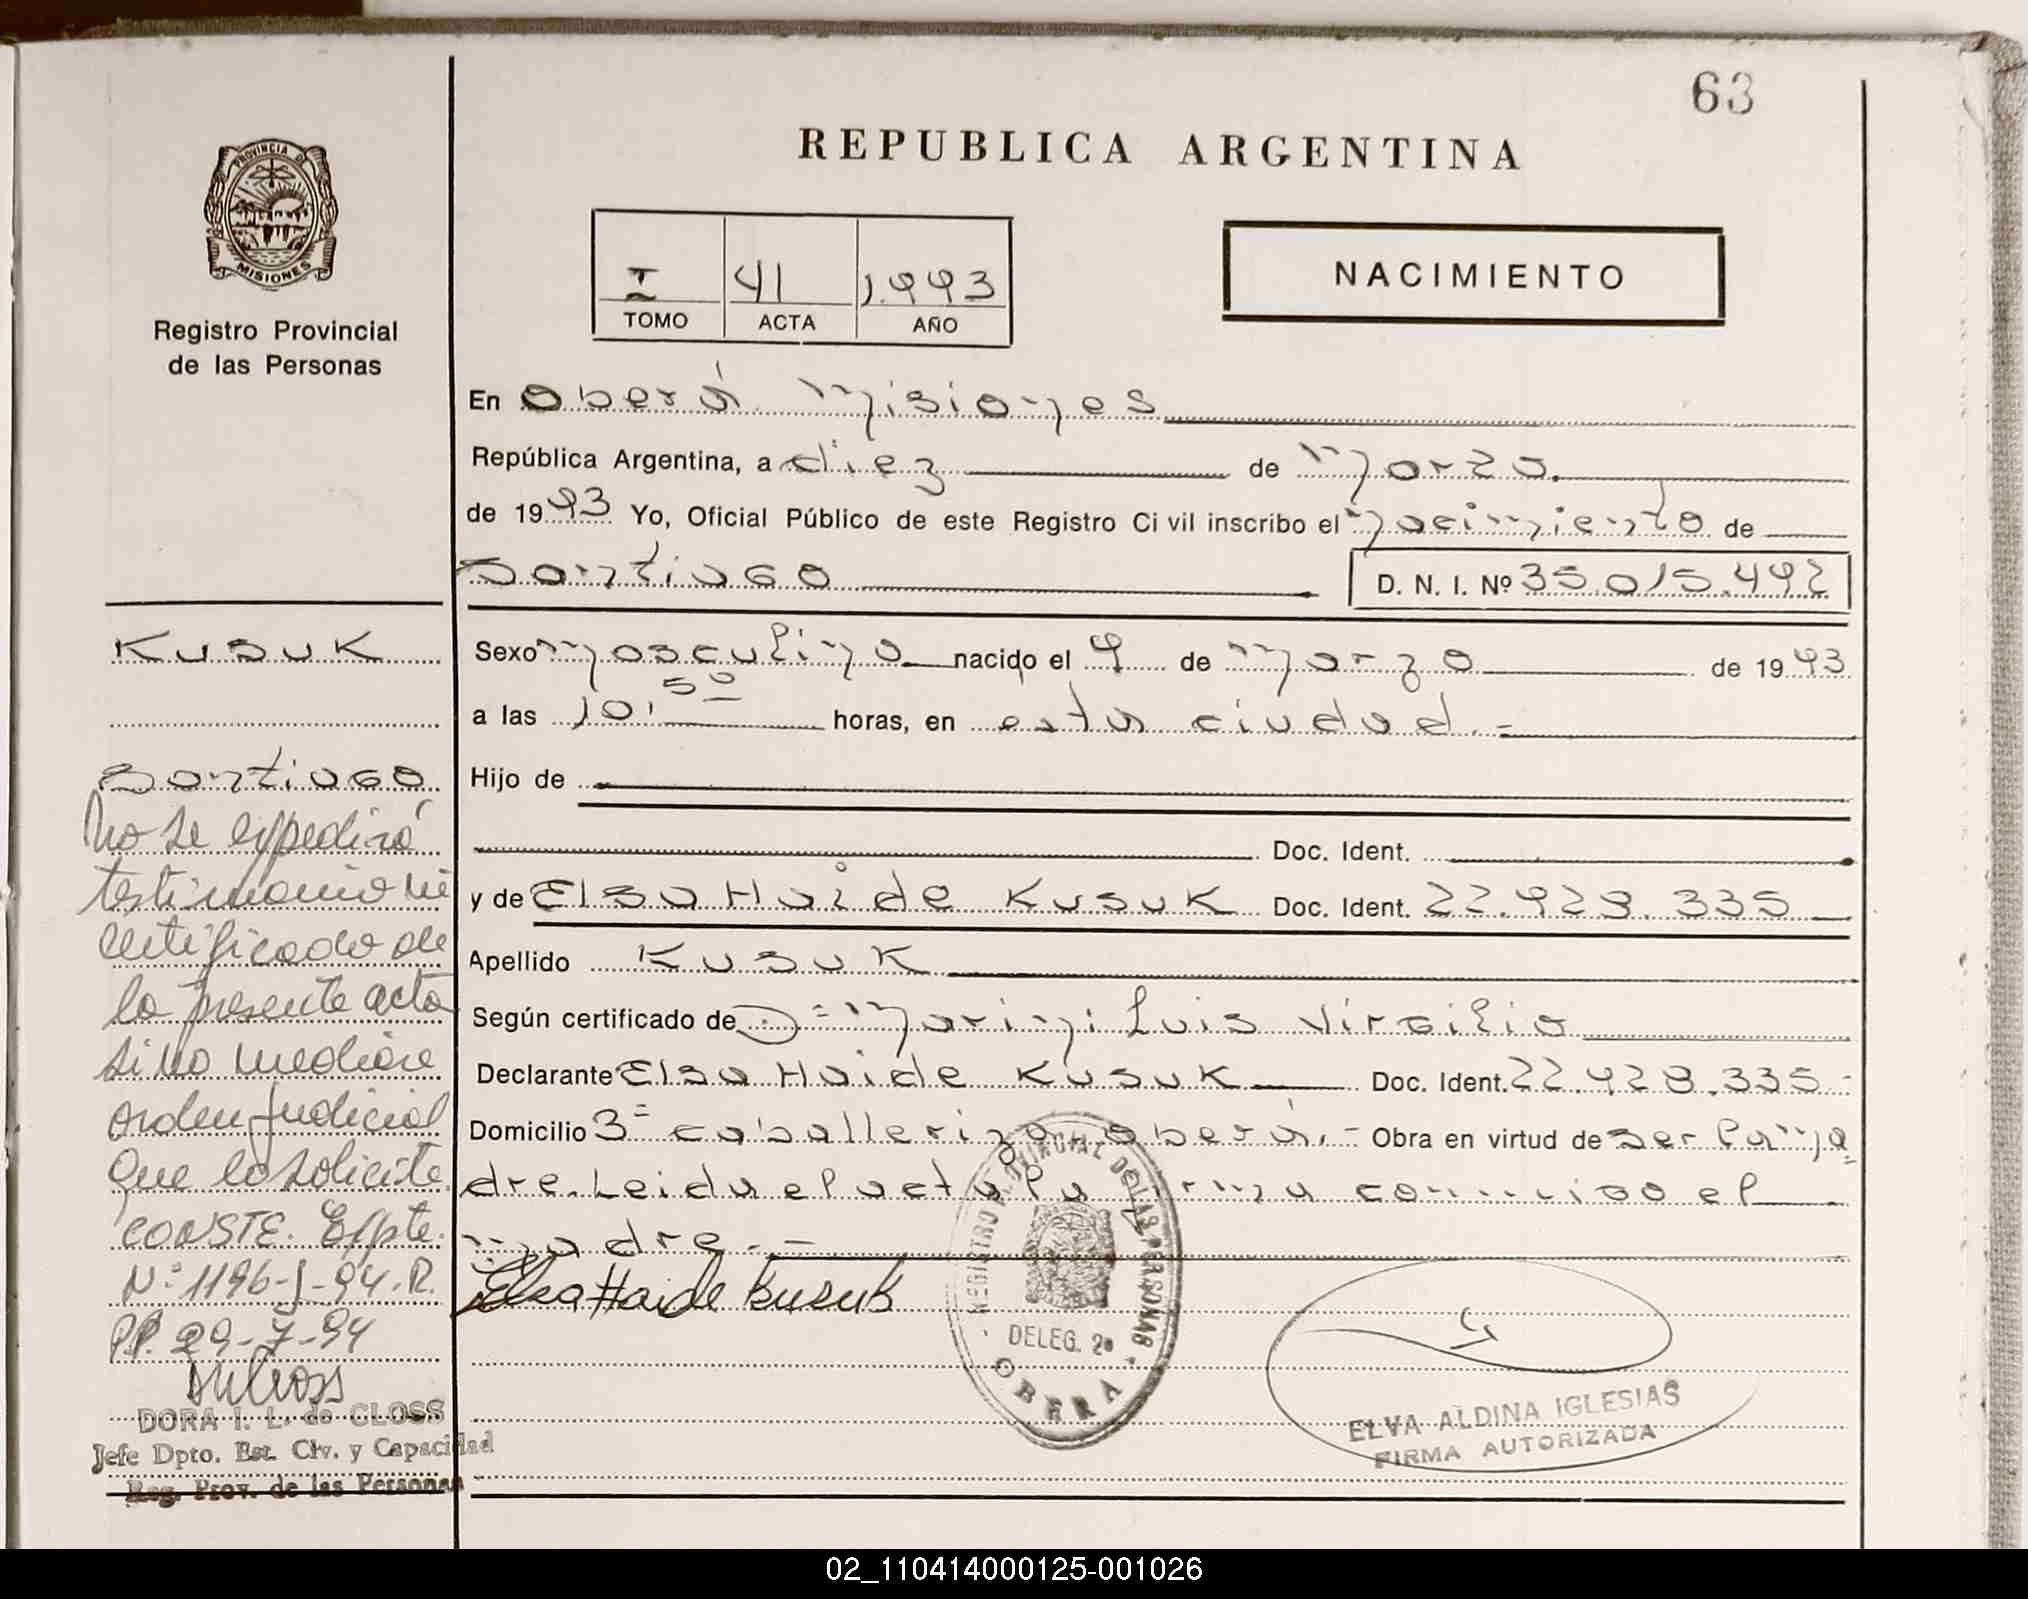 63
REPUBLICA ARGENTINA
PROVINCIA DE
MISIONES
Registro Provincial
de las Personas
I 41 1.993
TOMO ACTA AÑO
NACIMIENTO
En Oberá Misiones
República Argentina, a diez de Marzo.
de 1993 Yo, Oficial Público de este Registro Civil inscribo el nacimiento de
Santiago D. N. I. Nº 35.015.492
Kusuk
Sexo masculino nacido el 9 de Marzo de 1993
a las 10,50 horas, en esta ciudad.-
Santiago
Hijo de
Doc. Ident.
y de Elsa Haide Kusuk Doc. Ident. 22.928.335
Apellido Kusuk
Según certificado de D= Marini Luis Virgilio
Declarante Elsa Haide Kusuk Doc. Ident. 22.928.335-
Domicilio 3= caballeriza Oberá.- Obra en virtud de ser la ma=
dre. Leida el acta la firma conmigo el
madre.-
Elsa Haide Kusuk
No se expedirá
testimonio ni
certificado de
la presente acta
si no mediare
orden judicial
que lo solicite.
CONSTE. Expte.
Nº 1196-J-94.R.
PP. 29-7-94
DORA I. L. de CLOSS
Jefe Dpto. Est. Civ. y Capacidad
Reg. Prov. de las Personas
REGISTRO PROVINCIAL DE LAS PERSONAS
DELEG. 2ª
OBERA
ELVA ALDINA IGLESIAS
FIRMA AUTORIZADA
02_110414000125-001026